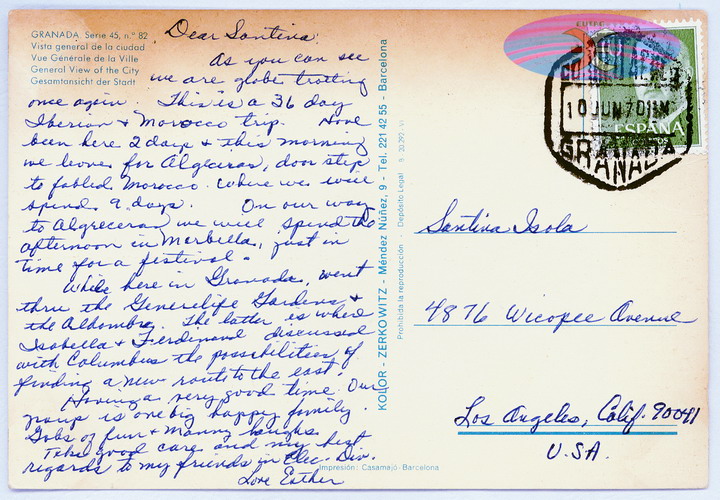 GRANADA. Serie 45, n.º 82
Vista general de la ciudad
Vue Générale de la Ville
General View of the City
Gesamtansicht der Stadt
Dear Santina:
As you can see
we are globe trotting
once again. This is a 36 day
Iberian & Morocco trip. Have
been here 2 days & this morning
we leave for Algeceras, door step
to fabled Morocco. Where we will
spend 9 days. On our way
to Algreceras we will spend the
afternoon in Marbella, just in
time for a festival.
While here in Granada, went
thru the Generelife Gardens &
the Aldombra. The latter is where
Isabella & Ferdinand discussed
with Columbus the possibilities of
finding a new route to the east.
Having a very good time. Our
group is one big happy family.
Gobs of fun & many laughs.
Take good care and my best
regards to my friends in Elec. Div.
Love Esther
KOLOR - ZERKOWITZ - Méndez Núñez, 9 - Tel. 221 42 55 - Barcelona
Prohibida la reproducción - Depósito Legal B. 20.292-VI
Impresión: Casamajó - Barcelona
CORREO AEREO
10 JUN 70
GRANADA
ESPAÑA
Santina Isola
4876 Wicopee Avenue
Los Angeles, Calif. 90041
U.S.A.